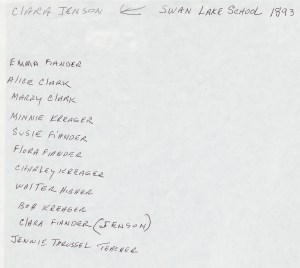 CLARA JENSON SWAN LAKE SCHOOL 1893
EMMA FIANDER
ALICE CLARK
MARRY CLARK
MINNIE KREAGER
SUSIE FIANDER
FLORA FIANDER
CHARLEY KREAGER
WALTER HIGHER
BOB KREAGER
CLARA FIANDER (JENSON)
JENNIE TEACHER